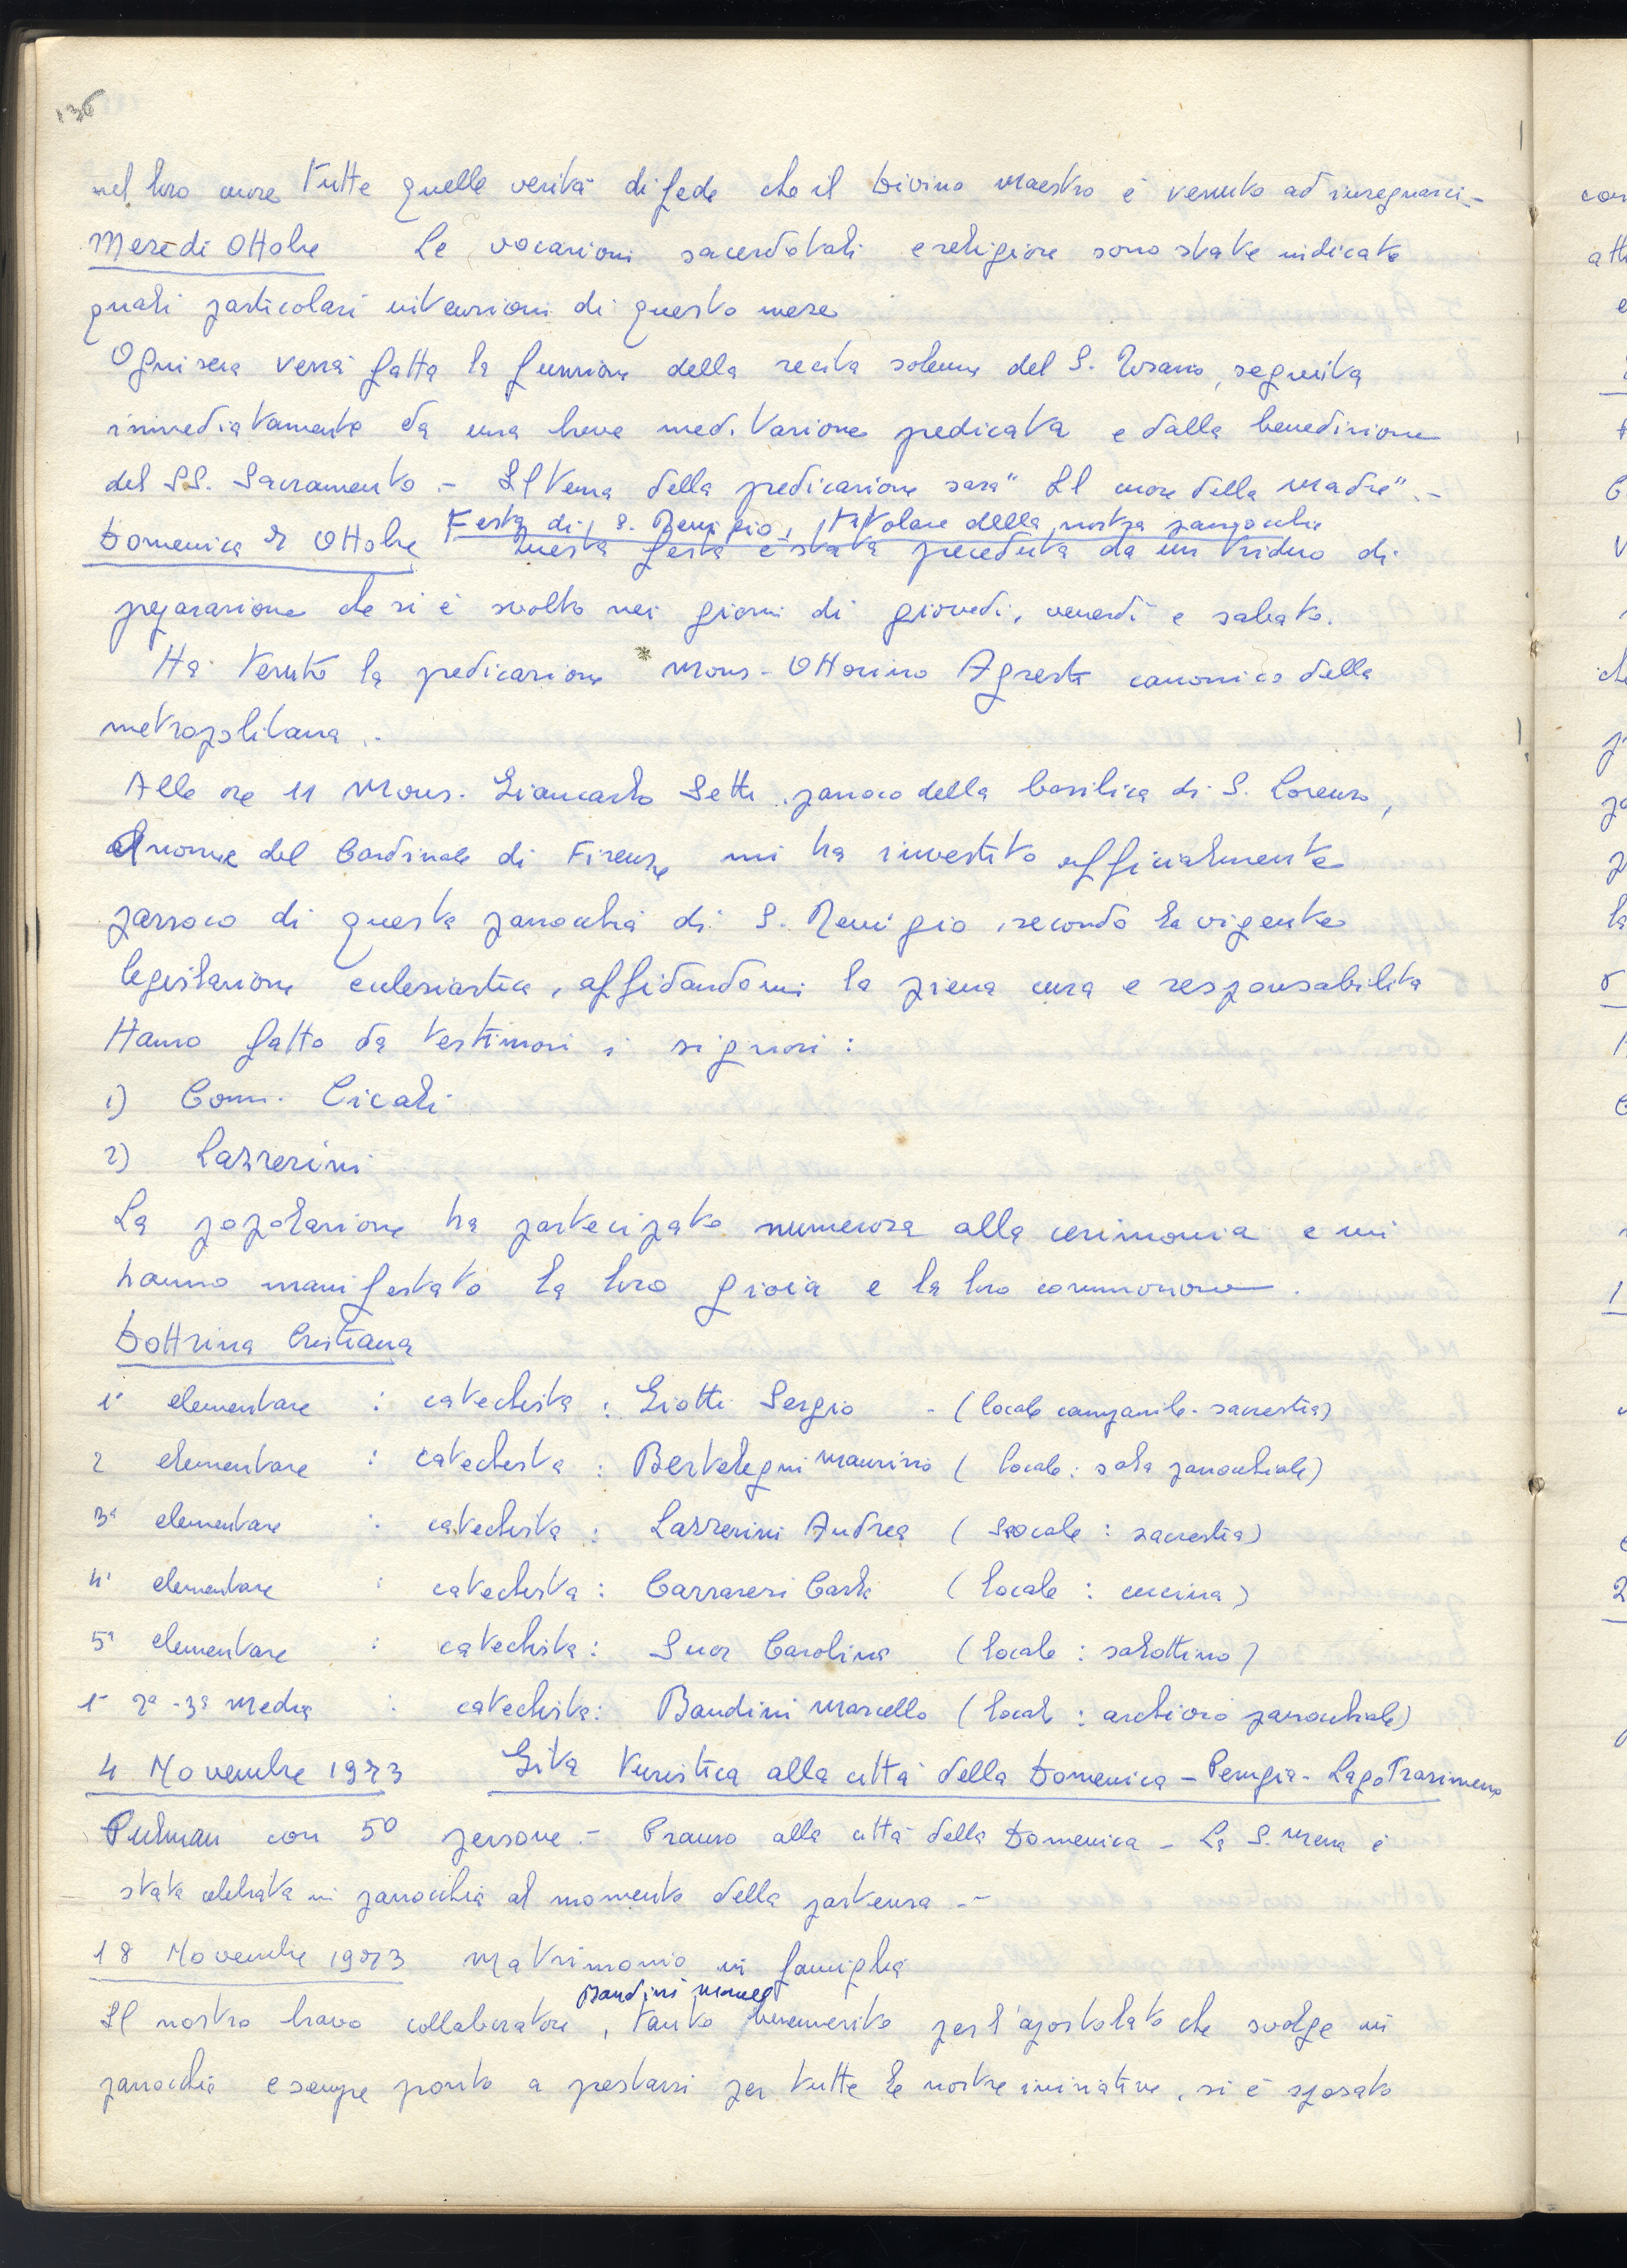 136
nel loro cuore tutte quelle verità di fede che il Divino Maestro è venuto ad insegnarci -
Mese di Ottobre Le vocazioni sacerdotali e religiose sono state indicate
quali particolari intenzioni di questo mese
Ogni sera verrà fatta la funzione della recita solenne del S. Rosario, seguita
immediatamente da una breve meditazione predicata e dalla benedizione
del SS. Sacramento. - Il tema della predicazione sarà "Il cuore della Madre". -
Festa di S. Remigio, titolare della nostra parrocchia
Domenica 7 Ottobre Questa festa è stata preceduta da un triduo di
preparazione che si è svolto nei giorni di giovedì, venerdì e sabato.
Ha tenuto la predicazione Mons. Ottorino Agresti canonico della
metropolitana. -
Alle ore 11 Mons. Giancarlo Setti, parroco della basilica di S. Lorenzo,
a nome del Cardinale di Firenze mi ha investito ufficialmente
parroco di questa parrocchia di S. Remigio, secondo la vigente
legislazione ecclesiastica, affidandomi la piena cura e responsabilità
Hanno fatto da testimoni i signori:
1) Comm. Cicali
2) Lazzerini
La popolazione ha partecipato numerosa alla cerimonia e mi
hanno manifestato la loro gioia e la loro commozione.
Dottrina Cristiana
1ª elementare : catechista : Giotti Sergio - (locale campanile - sacrestia)
2 elementare : catechista : Bertelegni Maurizio (locale: sala parrocchiale)
3ª elementare : catechista : Lazzerini Andrea (locale: sacrestia)
4ª elementare : catechista : Carraresi Carla (locale: cucina)
5ª elementare : catechista : Suor Carolina (locale: salottino)
1ª 2ª - 3ª Media : catechista: Bandini Marcello (locale: archivio parrocchiale)
4 Novembre 1973 Gita turistica alla città della Domenica - Perugia - Lago Trasimeno
Pulman con 50 persone. - Pranzo alla città della Domenica - La S. Messa è
stata celebrata in parrocchia al momento della partenza. -
18 Novembre 1973 Matrimonio in famiglia
Bandini
Il nostro bravo collaboratore, tanto benemerito per l'apostolato che svolge in
parrocchia e sempre pronto a prestarsi per tutte le nostre iniziative, si è sposato